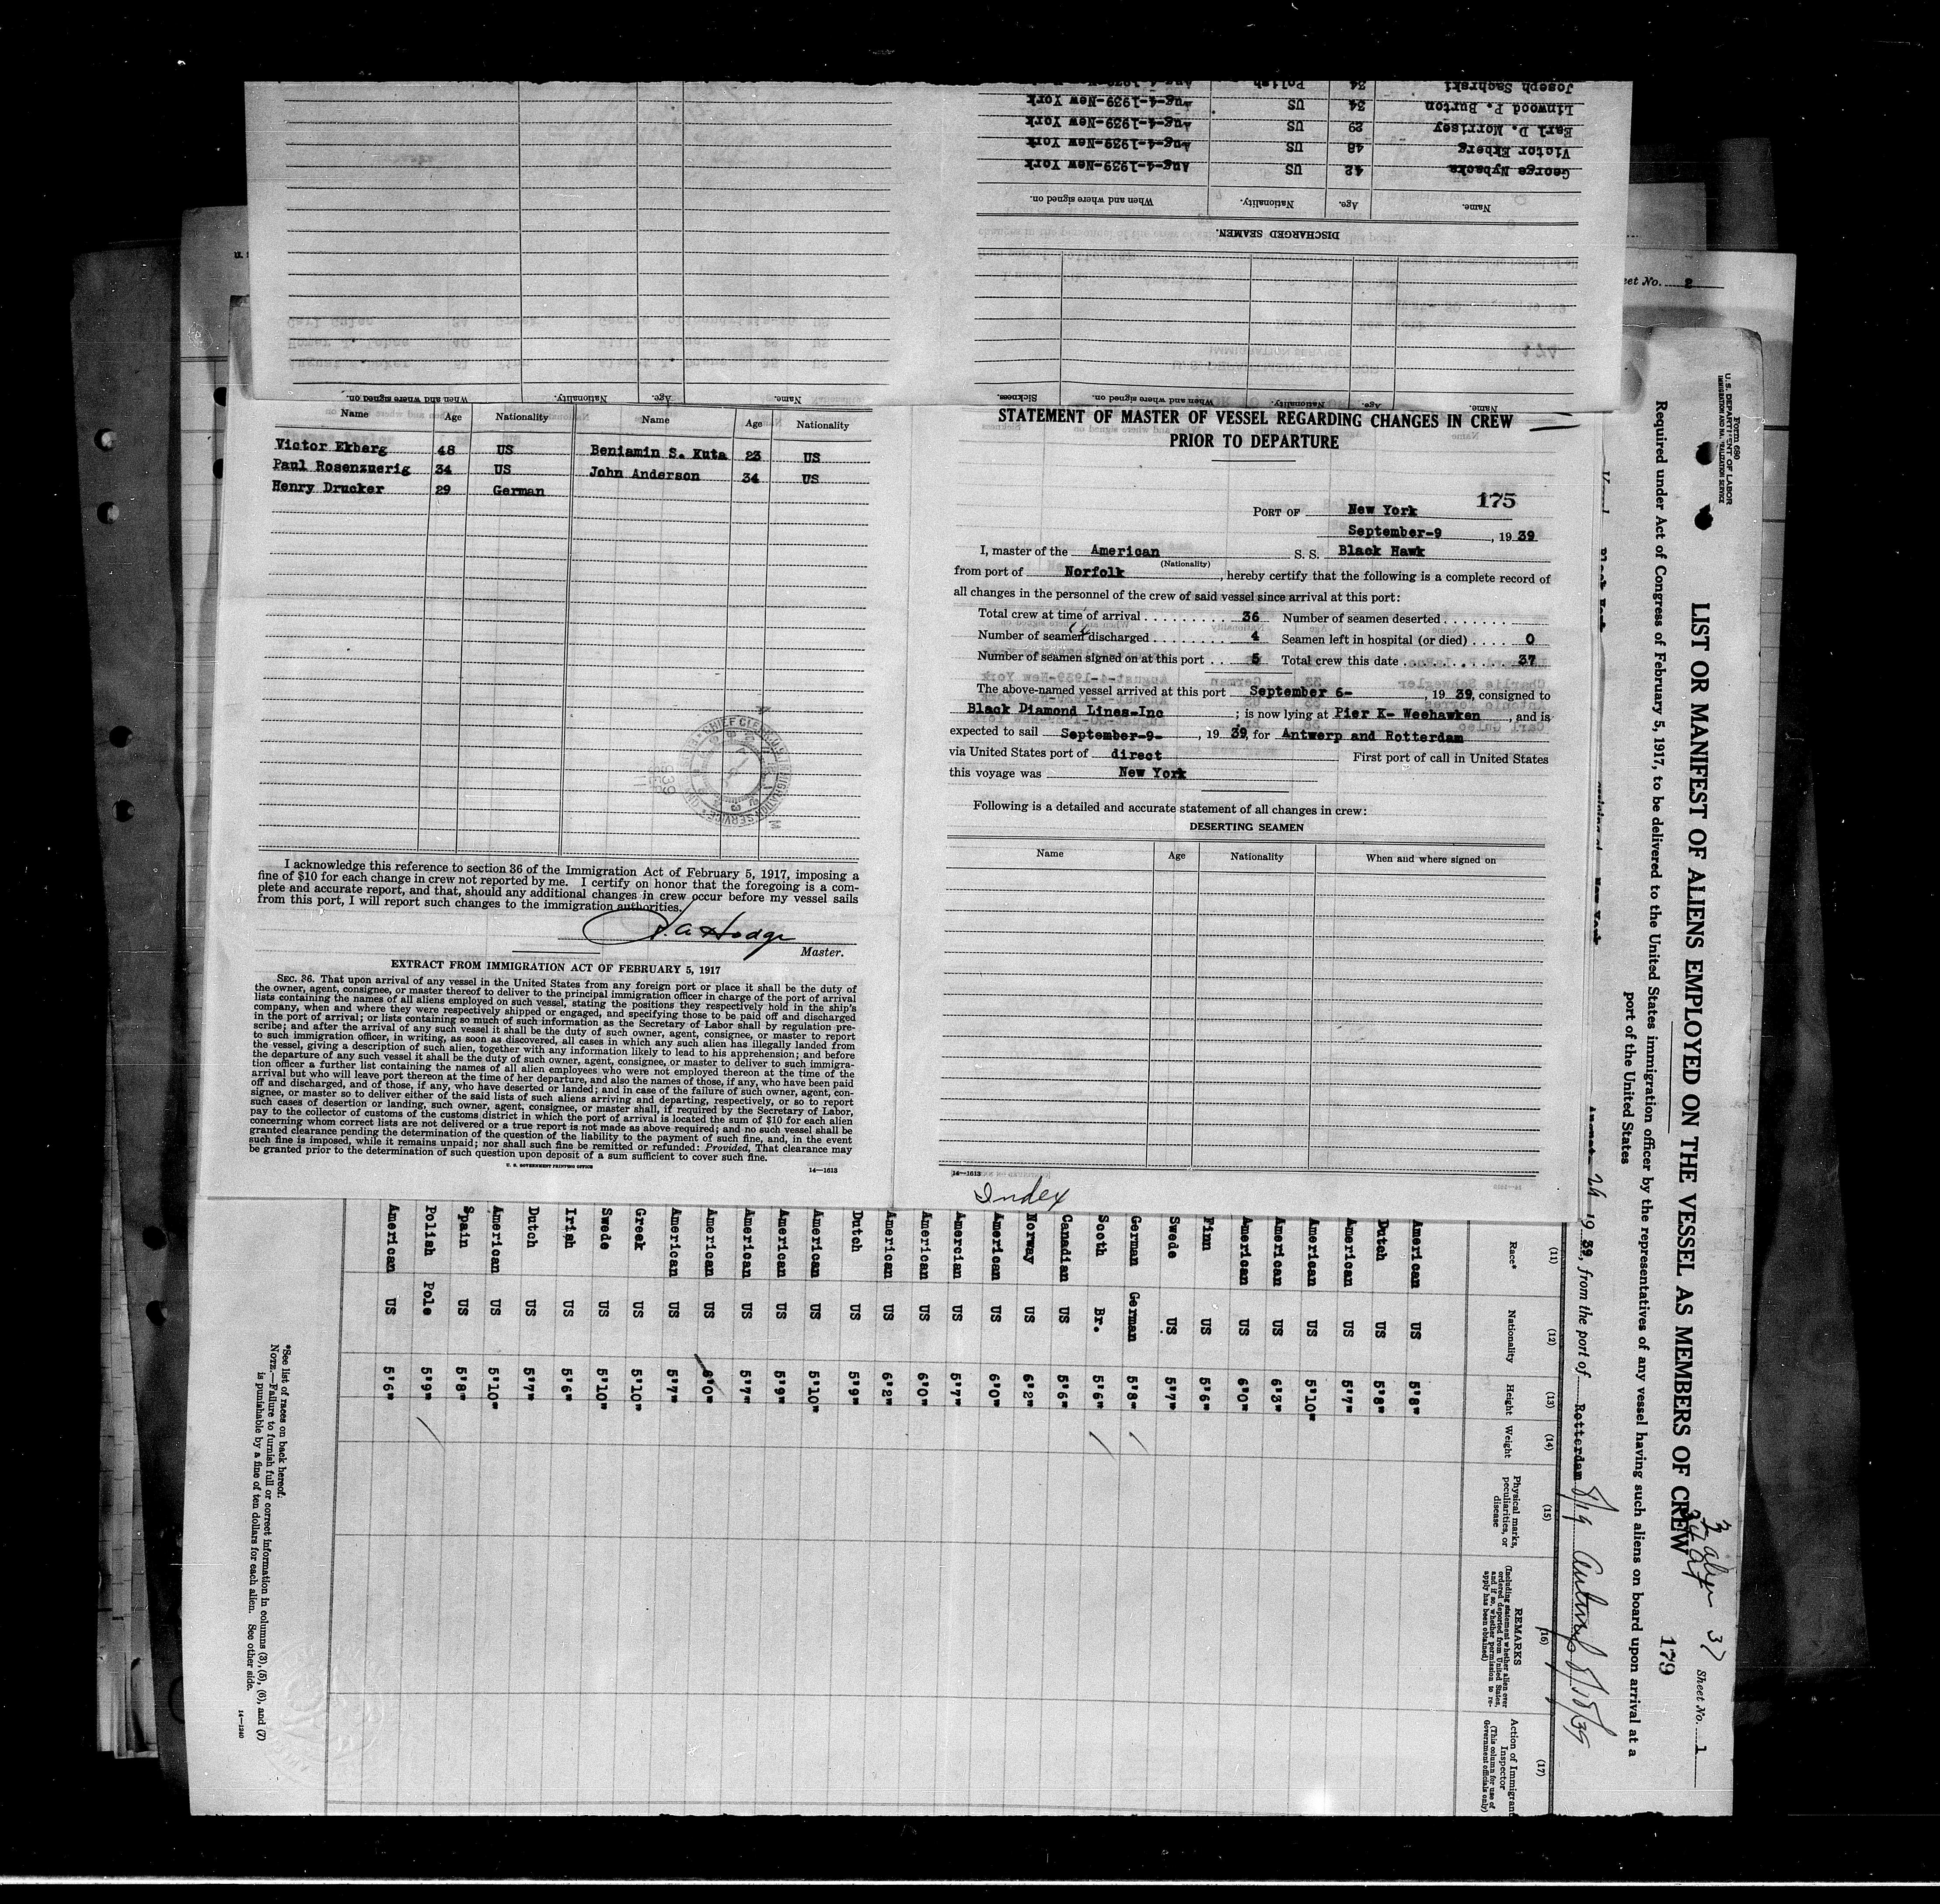 Joseph Sachraki 34 Polish Aug-4-1939-New York
Linwood P. Burton 34 US Aug-4-1939-New York
Earl D. Morrisey 29 US Aug-4-1939-New York
Victor Ekberg 48 US Aug-4-1939-New York
George Nybacks 42 US Aug-4-1939-New York
Name. Age. Nationality. When and where signed on.
DISCHARGED SEAMEN.
Name. Age. Nationality. When and where signed on. Sickness.
Name. Age. Nationality. When and where signed on.
eet No. 2
Name Age Nationality Name Age Nationality
Victor Ekberg 48 US Benjamin S. Kuta 23 US
Paul Rosenzuerig 34 US John Anderson 34 US
Henry Drucker 29 German
I acknowledge this reference to section 36 of the Immigration Act of February 5, 1917, imposing a
fine of $10 for each change in crew not reported by me. I certify on honor that the foregoing is a com-
plete and accurate report, and that, should any additional changes in crew occur before my vessel sails
from this port, I will report such changes to the immigration authorities.
Hodge
Master.
EXTRACT FROM IMMIGRATION ACT OF FEBRUARY 5, 1917
SEC. 36. That upon arrival of any vessel in the United States from any foreign port or place it shall be the duty of
the owner, agent, consignee, or master thereof to deliver to the principal immigration officer in charge of the port of arrival
lists containing the names of all aliens employed on such vessel, stating the positions they respectively hold in the ship's
company, when and where they were respectively shipped or engaged, and specifying those to be paid off and discharged
in the port of arrival; or lists containing so much of such information as the Secretary of Labor shall by regulation pre-
scribe; and after the arrival of any such vessel it shall be the duty of such owner, agent, consignee, or master to report
to such immigration officer, in writing, as soon as discovered, all cases in which any such alien has illegally landed from
the vessel, giving a description of such alien, together with any information likely to lead to his apprehension; and before
the departure of any such vessel it shall be the duty of such owner, agent, consignee, or master to deliver to such immigra-
tion officer a further list containing the names of all alien employees who were not employed thereon at the time of the
arrival but who will leave port thereon at the time of her departure, and also the names of those, if any, who have been paid
off and discharged, and of those, if any, who have deserted or landed; and in case of the failure of such owner, agent, con-
signee, or master so to deliver either of the said lists of such aliens arriving and departing, respectively, or so to report
such cases of desertion or landing, such owner, agent, consignee, or master shall, if required by the Secretary of Labor,
pay to the collector of customs of the customs district in which the port of arrival is located the sum of $10 for each alien
concerning whom correct lists are not delivered or a true report is not made as above required; and no such vessel shall be
granted clearance pending the determination of the question of the liability to the payment of such fine, and, in the event
such fine is imposed, while it remains unpaid; nor shall such fine be remitted or refunded: Provided, That clearance may
be granted prior to the determination of such question upon deposit of a sum sufficient to cover such fine.
U. S. GOVERNMENT PRINTING OFFICE 14—1613
STATEMENT OF MASTER OF VESSEL REGARDING CHANGES IN CREW
PRIOR TO DEPARTURE
175
PORT OF New York
September-9, 1939
I, master of the American S. S. Black Hawk
(Nationality)
from port of Norfolk, hereby certify that the following is a complete record of
all changes in the personnel of the crew of said vessel since arrival at this port:
Total crew at time of arrival 36 Number of seamen deserted
Number of seamen discharged 4 Seamen left in hospital (or died) 0
Number of seamen signed on at this port 5 Total crew this date 37
The above-named vessel arrived at this port September 6-, 1939, consigned to
Black Diamond Lines-Inc; is now lying at Pier K- Weehawken, and is
expected to sail September-9-, 1939, for Antwerp and Rotterdam
via United States port of direct First port of call in United States
this voyage was New York
Following is a detailed and accurate statement of all changes in crew:
DESERTING SEAMEN
Name Age Nationality When and where signed on
14—1613
Index
Form 680
U. S. DEPARTMENT OF LABOR
IMMIGRATION AND NATURALIZATION SERVICE
LIST OR MANIFEST OF ALIENS EMPLOYED ON THE VESSEL AS MEMBERS OF CREW
179
Sheet No. 1
Required under Act of Congress of February 5, 1917, to be delivered to the United States immigration officer by the representatives of any vessel having such aliens on board upon arrival at a
port of the United States
26 1939, from the port of Rotterdam 8/19 Antwerp 8/18/39
(11) (12) (13) (14) (15) (16) (17)
Race* Nationality Height Weight Physical marks, peculiarities, or disease REMARKS (Including statement whether alien ever ordered deported from United States, and if so, whether permission to re-apply has been obtained) Action of Immigrant Inspector (This column for use of Government officials only)
American US 5'8"
Dutch US 5'8"
American US 5'7"
American US 5'10"
American US 6'3"
American US 6'0"
Finn US 5'6"
Swede US 5'7"
German German 5'8"
Scoth Br. 5'6"
Canadian US 5'6"
Norway US 6'2"
American US 6'0"
Amercian US 5'7"
American US 6'0"
American US 6'2"
Dutch US 5'9"
American US 5'10"
American US 5'9"
American US 5'7"
American US 6'0"
American US 5'7"
Greek US 5'10"
Swede US 5'10"
Irish US 5'6"
Dutch US 5'7"
American US 5'10"
Spain US 5'8"
Polish Pole 5'9"
American US 5'6"
*See list of races on back hereof.
NOTE.—Failure to furnish full or correct information in columns (3), (5), (6), and (7)
is punishable by a fine of ten dollars for each alien. See other side.
14—1240